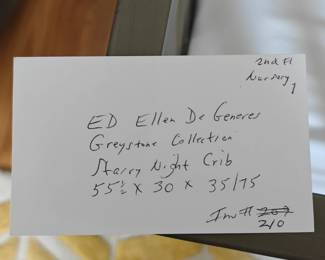 2nd Fl
Nursery
1
ED Ellen De Generes
Greystone Collection
Starry Night Crib
55½ x 30 x 35/75
Inv # 207
210